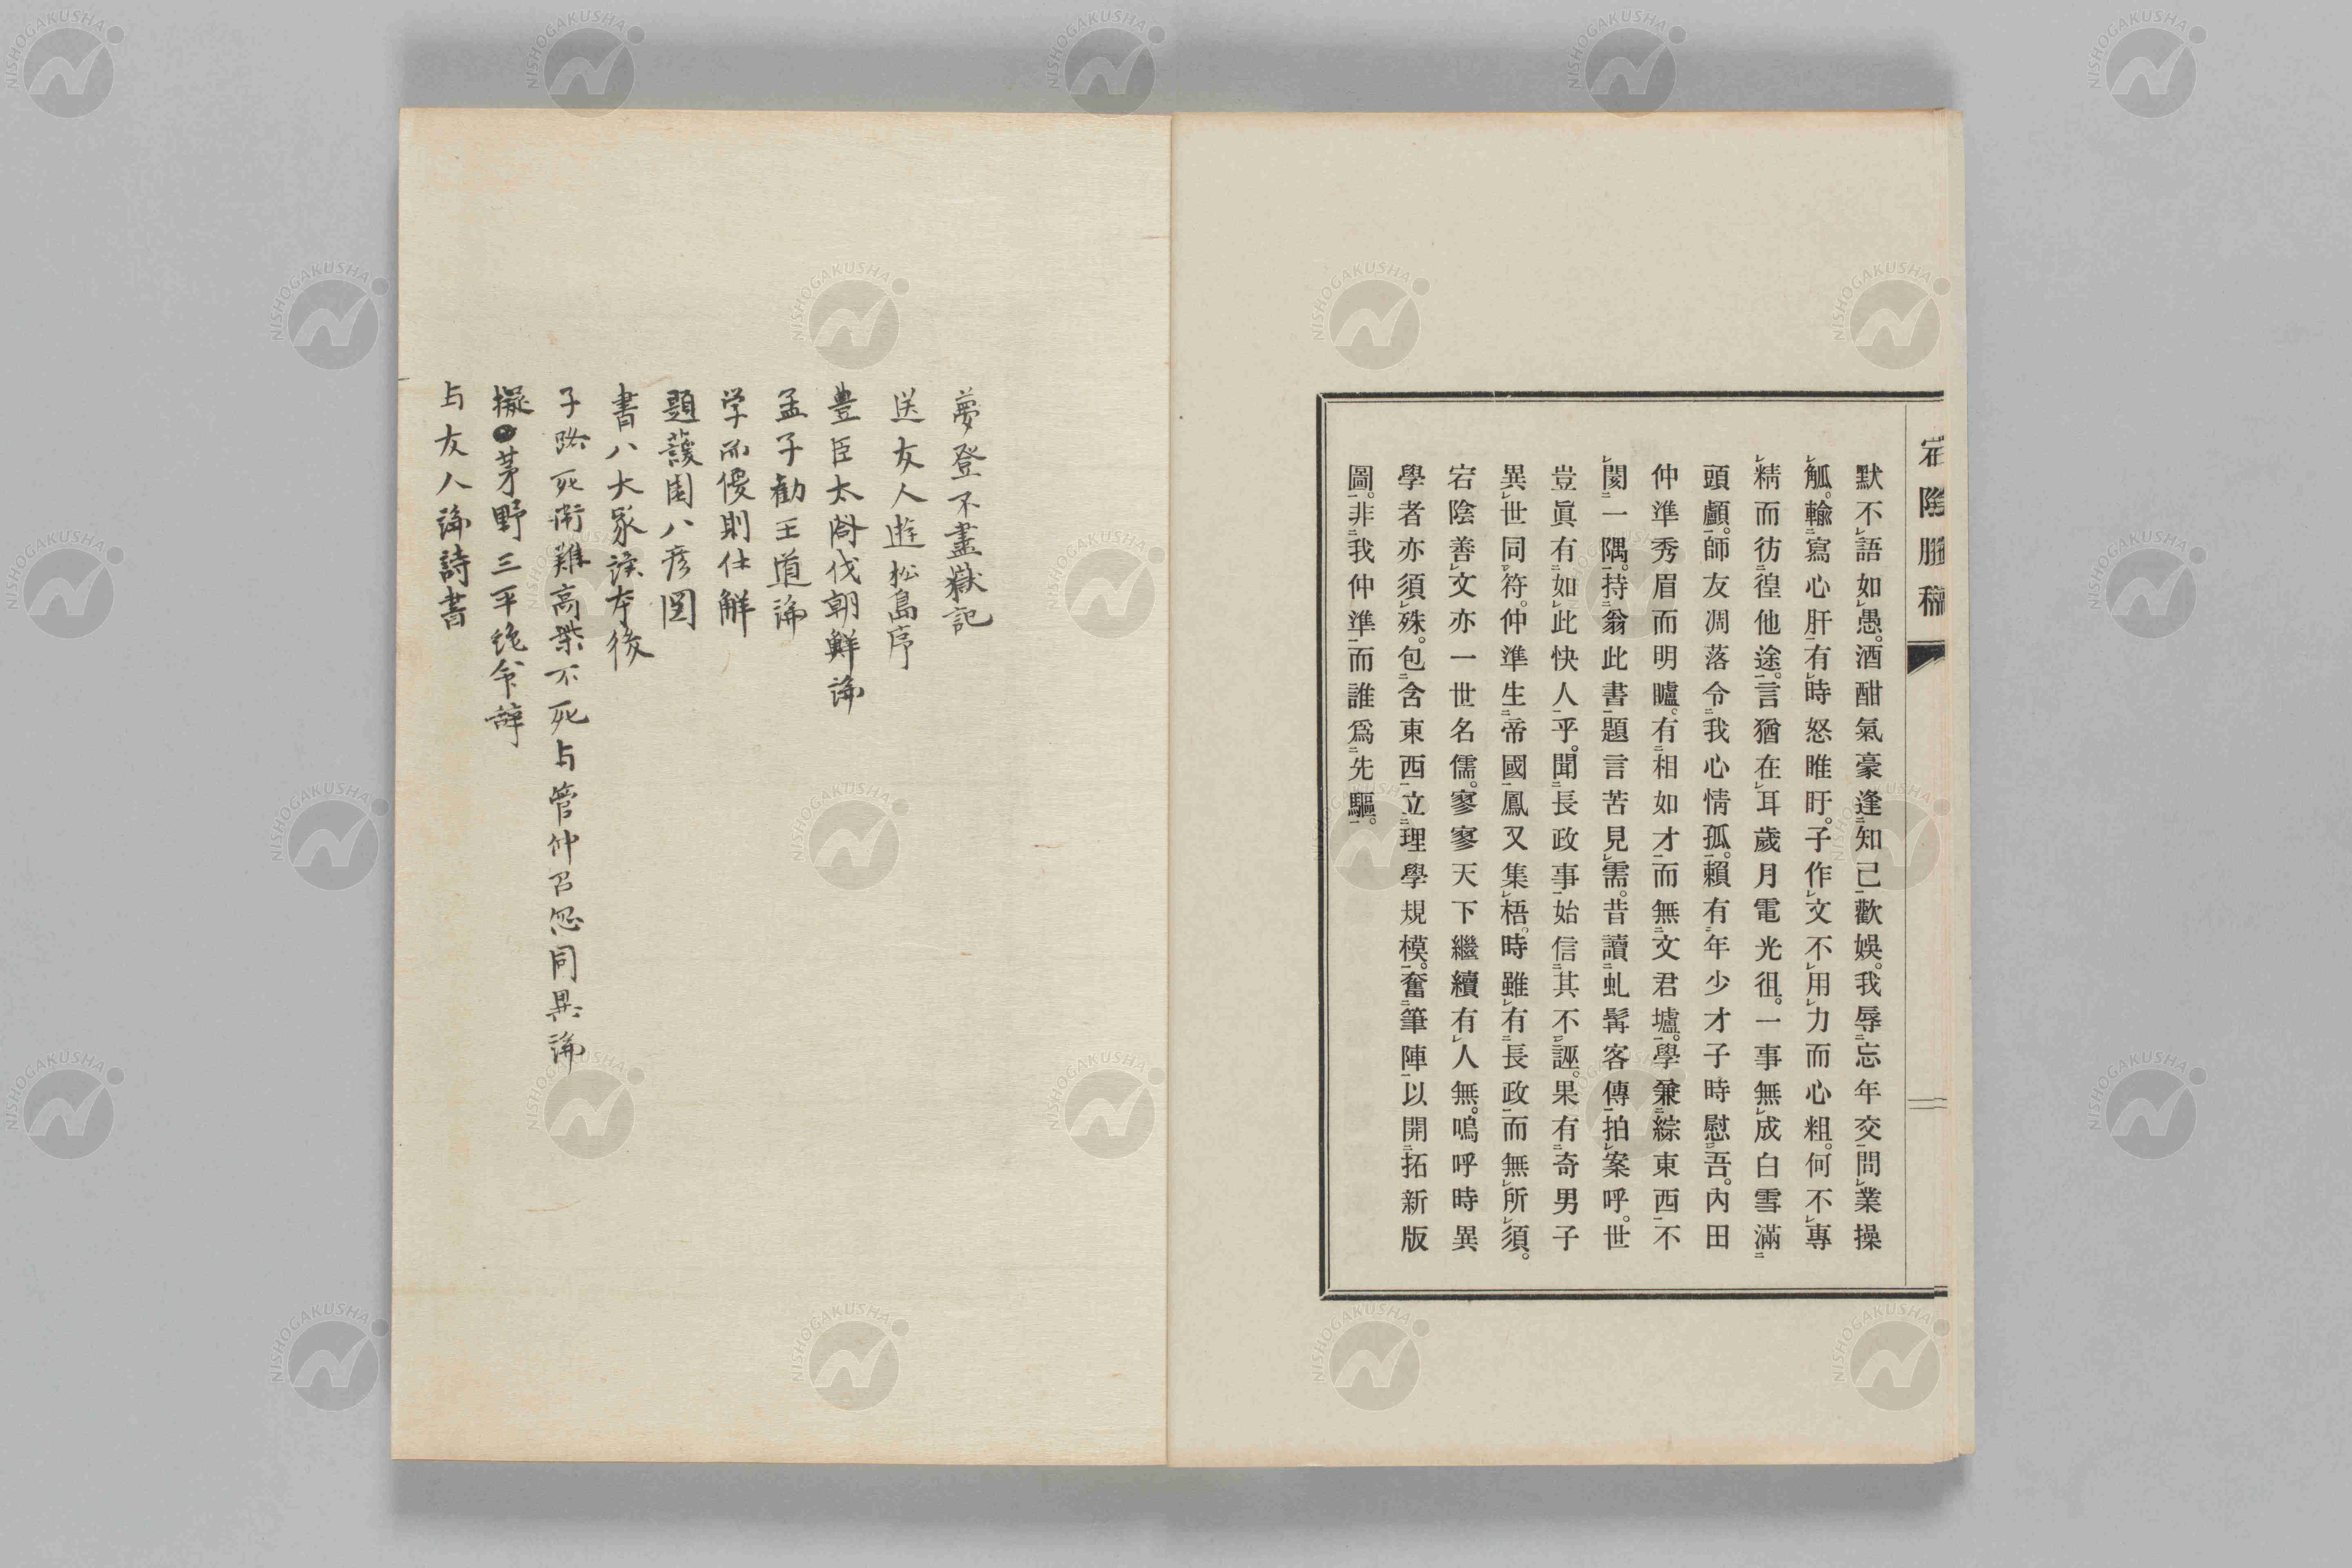 宕陰賸稿
默不語如愚。酒酣氣豪逢知己歡娛。我辱忘年交問業操
觚。輸寫心肝有時怒睢盱。子作文不用力而心粗。何不專
精而彷徨他途。言猶在耳歲月電光徂。一事無成白雪滿
頭顱。師友凋落令我心情孤。賴有年少才子時慰吾。內田
仲準秀眉而明矑。有相如才而無文君壚。學兼綜東西不
閡一隅。持翁此書題言苦見需。昔讀虬髯客傳拍案呼。世
豈眞有如此快人乎。聞長政事始信其不誣。果有奇男子
異世同符。仲準生帝國鳳又集梧。時雖有長政而無所須。
宕陰善文亦一世名儒。寥寥天下繼續有人無。嗚呼時異
學者亦須殊。包含東西立理學規模。奮筆陣以開拓新版
圖。非我仲準而誰爲先驅。
夢登不盡嶽記
送友人遊松島序
豊臣太閤伐朝鮮論
孟子勧王道論
学而優則仕解
題蘐園八彦図
書八大家読本後
子路死衛難高柴不死与管仲召忽同異論
擬茅野三平絶命辞
与友人論詩書
NISHOGAKUSHA